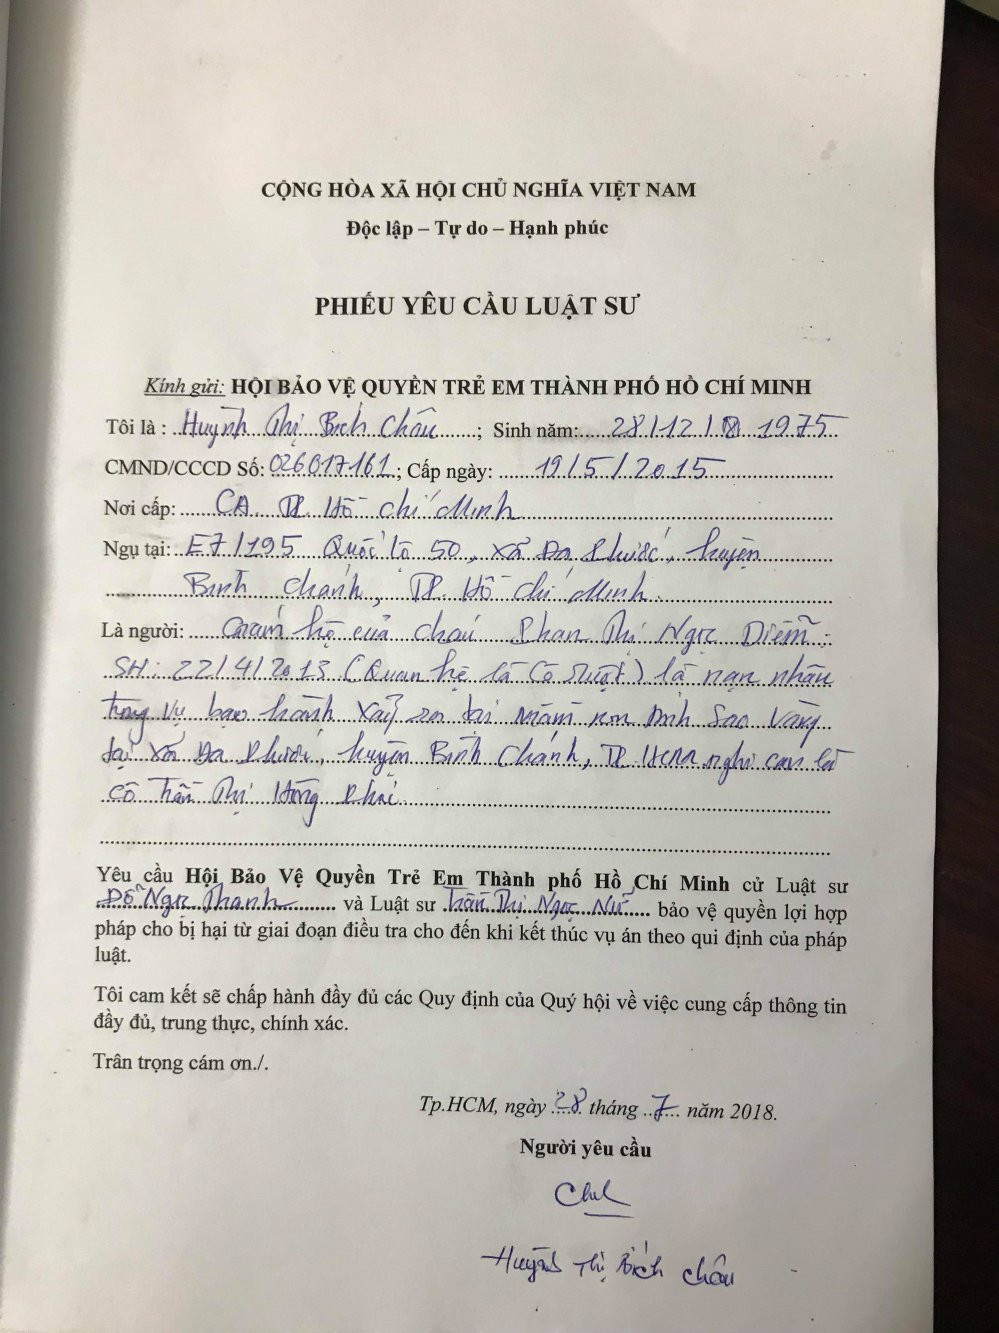 CỘNG HÒA XÃ HỘI CHỦ NGHĨA VIỆT NAM
Độc lập – Tự do – Hạnh phúc
PHIẾU YÊU CẦU LUẬT SƯ
Kính gửi: HỘI BẢO VỆ QUYỀN TRẺ EM THÀNH PHỐ HỒ CHÍ MINH
Tôi là : Huỳnh Thị Bích Châu ; Sinh năm: 28/12/ 1975
CMND/CCCD Số: 026017161 ; Cấp ngày: 19/5/2015
Nơi cấp: CA. TP. Hồ Chí Minh
Ngụ tại: E7/195 Quốc lộ 50, xã Đa Phước, huyện
Bình Chánh, TP. Hồ Chí Minh.
Là người: Giám hộ của cháu Phan Thị Ngọc Diễm.
SH: 22/4/2013 (Quan hệ là Cô ruột) là nạn nhân
trong vụ bạo hành xảy ra tại mầm non Ánh Sao Vàng
tại xã Đa Phước, huyện Bình Chánh, TP HCM nghi can là
cô Trần Thị Hồng
Yêu cầu Hội Bảo Vệ Quyền Trẻ Em Thành phố Hồ Chí Minh cử Luật sư
Đỗ Ngọc Thanh và Luật sư Trần Thị Ngọc Nữ bảo vệ quyền lợi hợp
pháp cho bị hại từ giai đoạn điều tra cho đến khi kết thúc vụ án theo qui định của pháp
luật.
Tôi cam kết sẽ chấp hành đầy đủ các Quy định của Quý hội về việc cung cấp thông tin
đầy đủ, trung thực, chính xác.
Trân trọng cám ơn./.
Tp.HCM, ngày 28 tháng 7 năm 2018.
Người yêu cầu
Huỳnh Thị Bích Châu